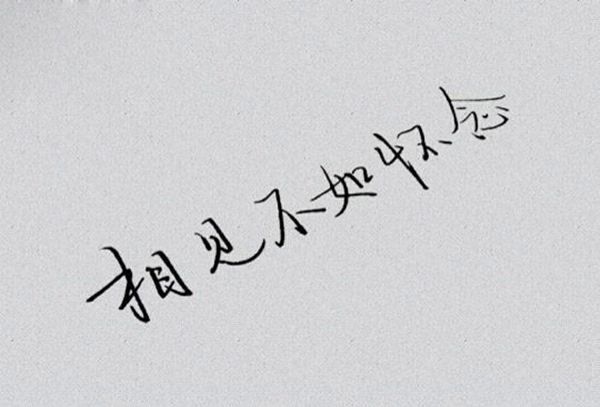 相见不如怀念